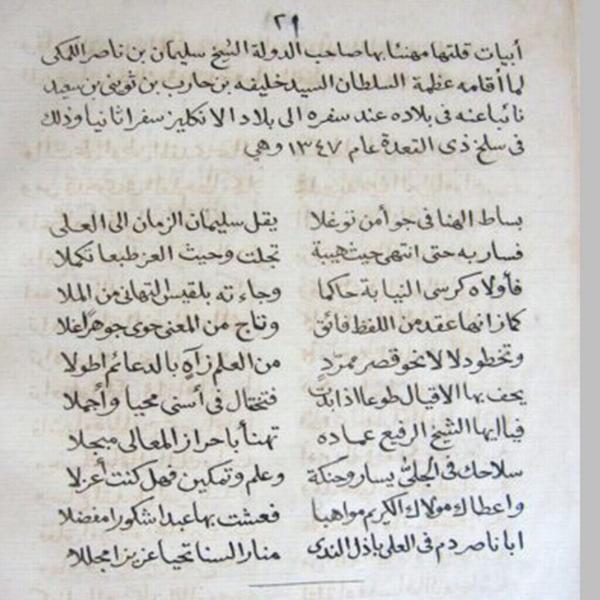 ٢٩
أبيات قلتها مهنئا بها صاحب الدولة الشيخ سليمان بن ناصر اللمكى
لما أقامه عظمة السلطان السيد خليفه بن حارب بن ثوينى بن سعيد
نائبا عنه فى بلاده عند سفره الى بلاد الانكليز سفرا ثانيا وذلك
فى سلخ ذى القعدة عام ١٣٤٧ وهي
بساط الهنا فى جو أمن توغلا يقل سليمان الزمان الى العلى
فسار به حتى انتهى حيث هيبة تجلت وحيث العز طبعا تكملا
فأولاه كرسى النيابة حاكما وجاءته بلقيس التهانى من الملا
كما زانها عقد من اللفظ فائق وتاج من المعنى حوى جوهرا غلا
وتخطو دلالا نحو قصر ممرد من العلم زاه بالدعائم اطولا
يحف بها الاقيال طوعا اذا بدت فتختال فى أسنى محيا وأجملا
فيا ايها الشيخ الرفيع عماده تهنأ باحراز المعالى مبجلا
سلاحك فى الجلى يسار وحنكة وعلم وتمكين فهل كنت أعزلا
واعطاك مولاك الكريم مواهبا فعشت بها عبدا شكورا مفضلا
ابا ناصر دم فى العلى باذل الندى منار السنا تحيا عزيزا مجللا